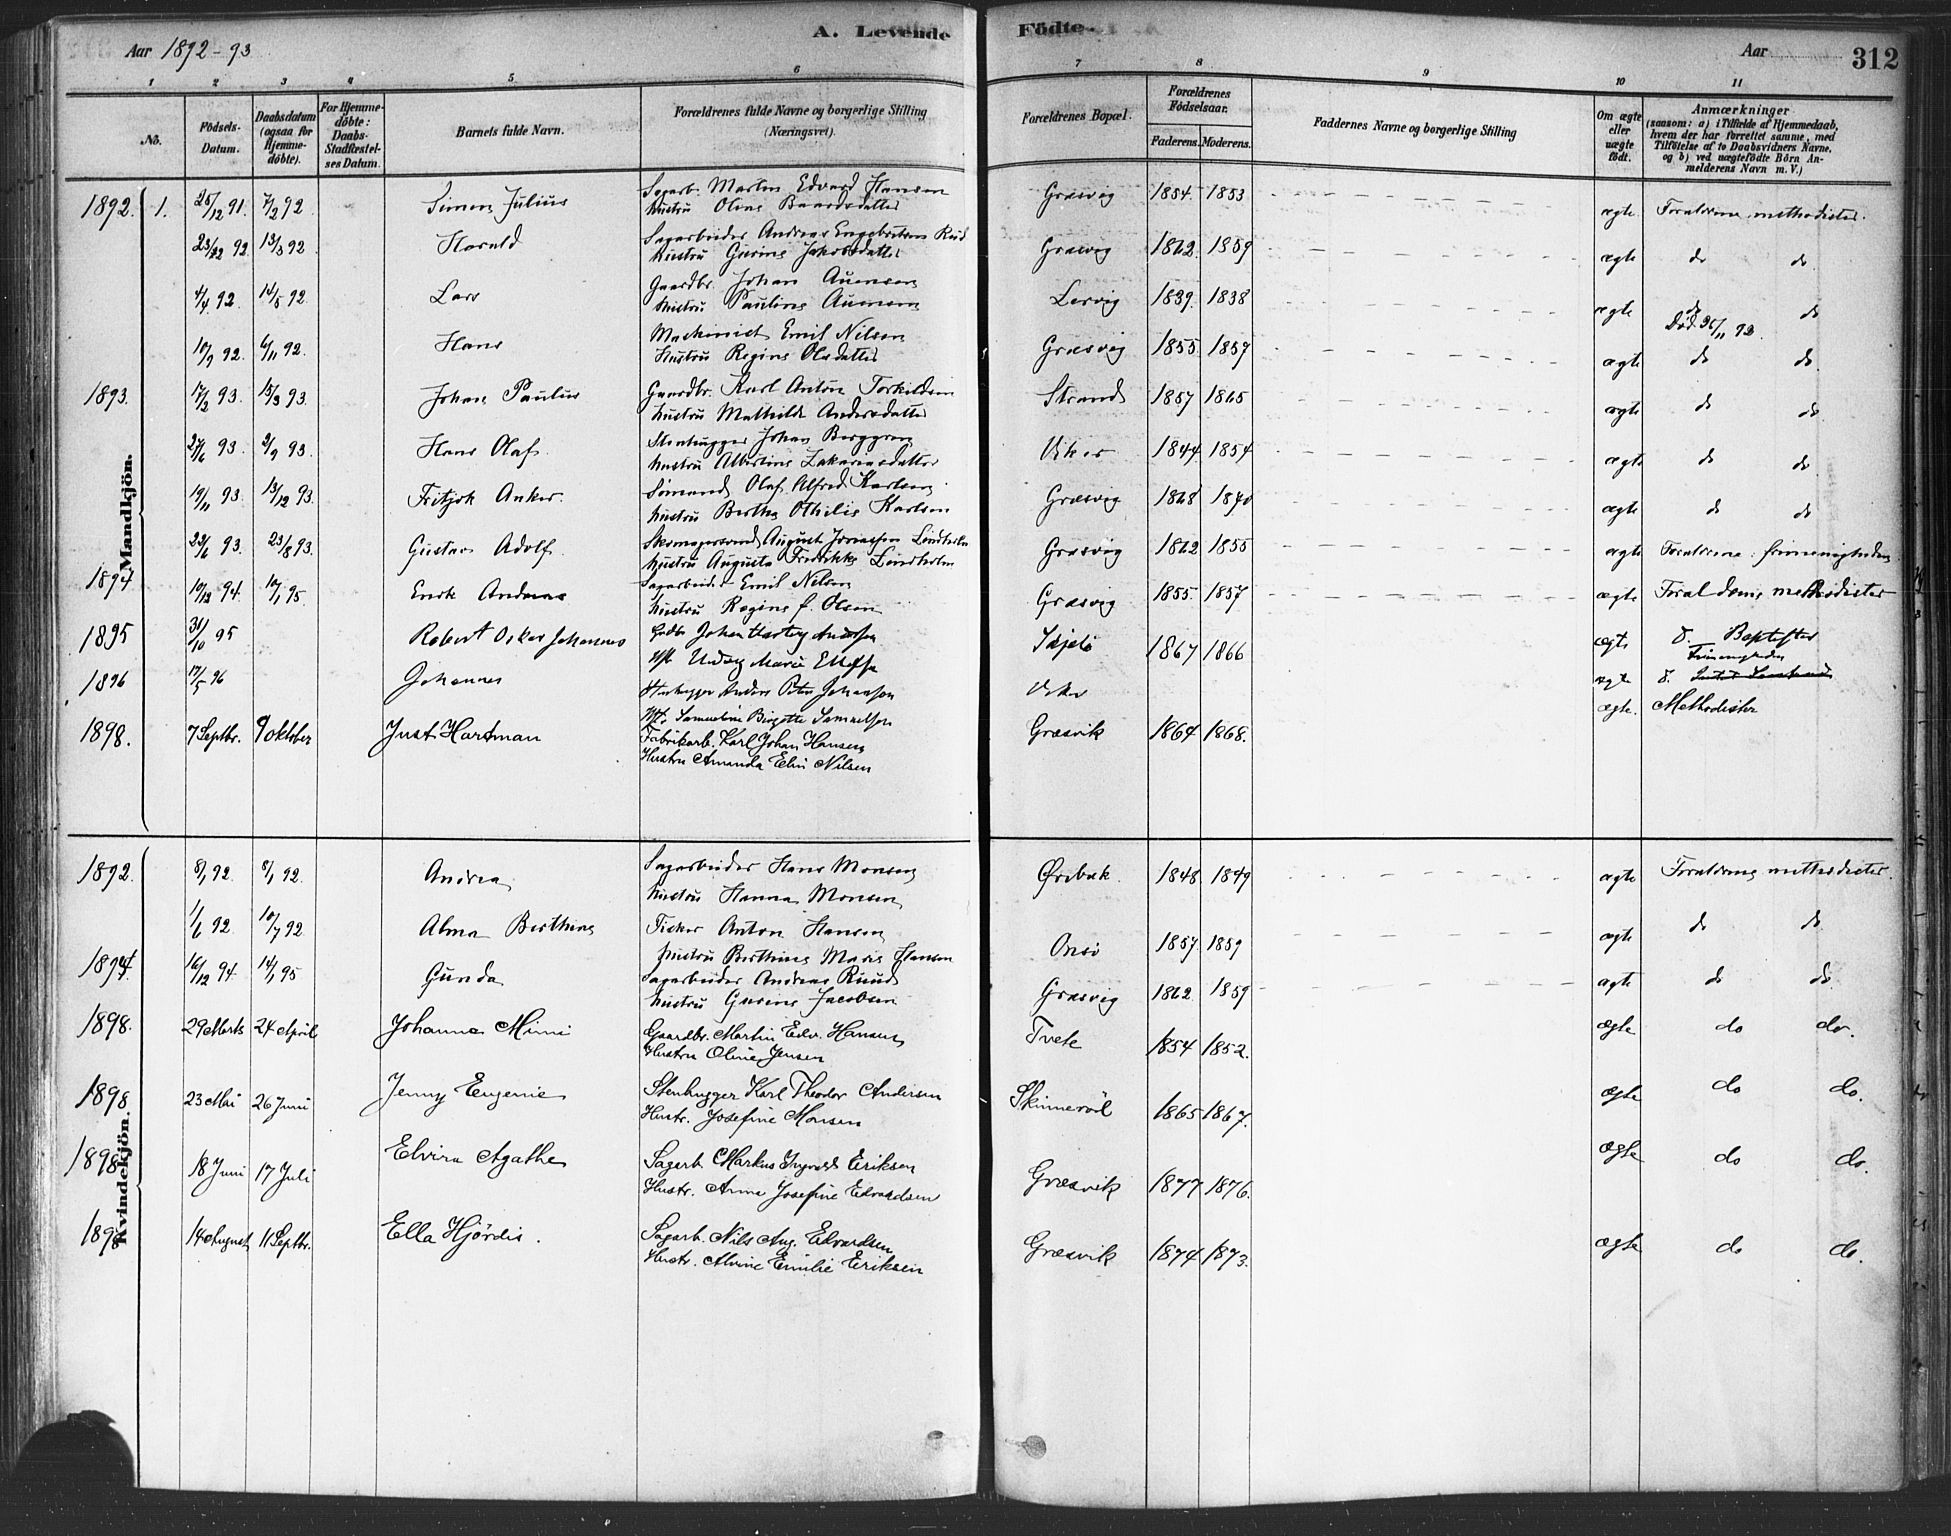 Aar 1892-93
A. Levende Födte.
Aar 312
1 2 3 4 5 6 7 8 9 10 11
No.
Födsels-Datum.
Daabsdatum (ogsaa for Hjemmedöbte).
For Hjemmedöbte: Daabs-Stadfæstelses Datum.
Barnets fulde Navn.
Forældrenes fulde Navne og borgerlige Stilling (Næringsvei).
Forældrenes Bopæl.
Forældrenes Födselsaar.
Faderens. Moderens.
Faddernes Navne og borgerlige Stilling
Om ægte eller uægte födt.
Anmærkninger
(saasom: a) i Tilfælde af Hjemmedaab, hvem der har forrettet samme, med Tilföielse af to Daabsvidners Navne, og b) ved uægtefödte Börn Anmelderens Navn m. V.)
Mandkjön.
1892. 1. 25/12 91. 7/2 92 Simon Julius Sagarb. Martin Edvard Hansen Græsvig 1854. 1853 ægte Forældrene methodister.
Hustru Oline Baardsdatter
92 13/3 92 Harald Sagarbeider Andreas Engebretsen Rud Græsvig 1862 1859 ægte do do
Hustru Gurine Jakobsdatter
4/4 92 14/5 92. Lars Gaardbr. Johan Auensen Lervig 1839. 1838 ægte do do
Hustru Pauline Auensen
Död 92
10/9 92. 6/11 92. Hans Maskinist Emil Nilsen Græsvig 1855. 1857 ægte do do
Hustru Regine Olsdatter
1893. 17/2 93. 15/3 93. Johan Paulius Gaardbr. Karl Anton Torkildsen Strand 1857 1865 ægte do do
Hustru Mathilde Andersdatter
27/6 93 3/9 93. Hans Olaf Stenhugger Johan Berggren Viker 1844. 1854 ægte do do
Hustru Albertine Zakariasdatter
19/11 93. 13/12 93. Fritjof Anker. Sömand Olaf Alfred Karlsen Græsvig 1868 1870 ægte do do
Hustru Bertha Othilie Karlsen
23/6 93. 23/8 93. Gustav Adolf Skomagersvend August Jonassen Lindholm Græsvig 1862 1855 ægte Forældrene frimenigheden
Hustru Augusta Fredrikke Lindholm
1894 10/12 94. 10/1 95. Enok Andreas Sagarbeider Emil Nilsen Græsvig 1855. 1857 ægte Forældrene methodister
Hustru Regine f. Olsen
1895 31/10 95 Robert Oskar Johannes Gdbr Johan Hartvig Andersen 1867 1866 ægte d. Baptister
1896 17/5 96 Johannes Stenhugger Anders Peter Johansson Viker ægte d. Frimenigheden
Hstr. Samueline Birgitte Samuelsen
1898. 7 Septbr. 9 oktober Just Hartman Fabrikarb. Karl Johan Hansen Græsvik 1864 1868. ægte. Methodister
Hustru Amanda Elin Nilsen
Kvindekjön.
1892. 8/1 92. 8/1 92. Andrea Sagarbeider Hans Monsen Örebæk. 1848 1849 ægte Forældrene methodister.
Hustru Hanna Monsen
1/6 92 10/7 92. Alma Berthine Fisker Anton Hansen Onsö 1857 1859 ægte do do
Hustru Berthine Marie Hansen
1894. 16/12 94. 14/1 95 Gunda Sagarbeider Andreas Ruud Græsvig 1862. 1859 ægte do do.
Hustru Gurine Jacobsen
1898. 29 Marts 24 April Johanna Mimi Gaardbr. Martin Edv. Hansen Tvete 1854 1852. ægte do do.
Hustru Oline Jensen
1898 23 Mai 26 Juni Jenny Eugenie Stenhugger Karl Theodor Andersen Skinneröd 1865 1867. ægte do do.
Hustr. Josefine Monsen
1898. 18 Juni 17 Juli Elvira Agathe Sagarb. Markus Ingvald Eriksen Græsvik 1877 1876. ægte do do.
Hustr. Anna Josefine Edvardsen
1898 14 August 11 Septbr. Ella Hjördis. Sagarb. Nils Aug. Edvardsen Græsvik 1874 1873. ægte do do.
Hustr. Alvine Emilie Eriksen